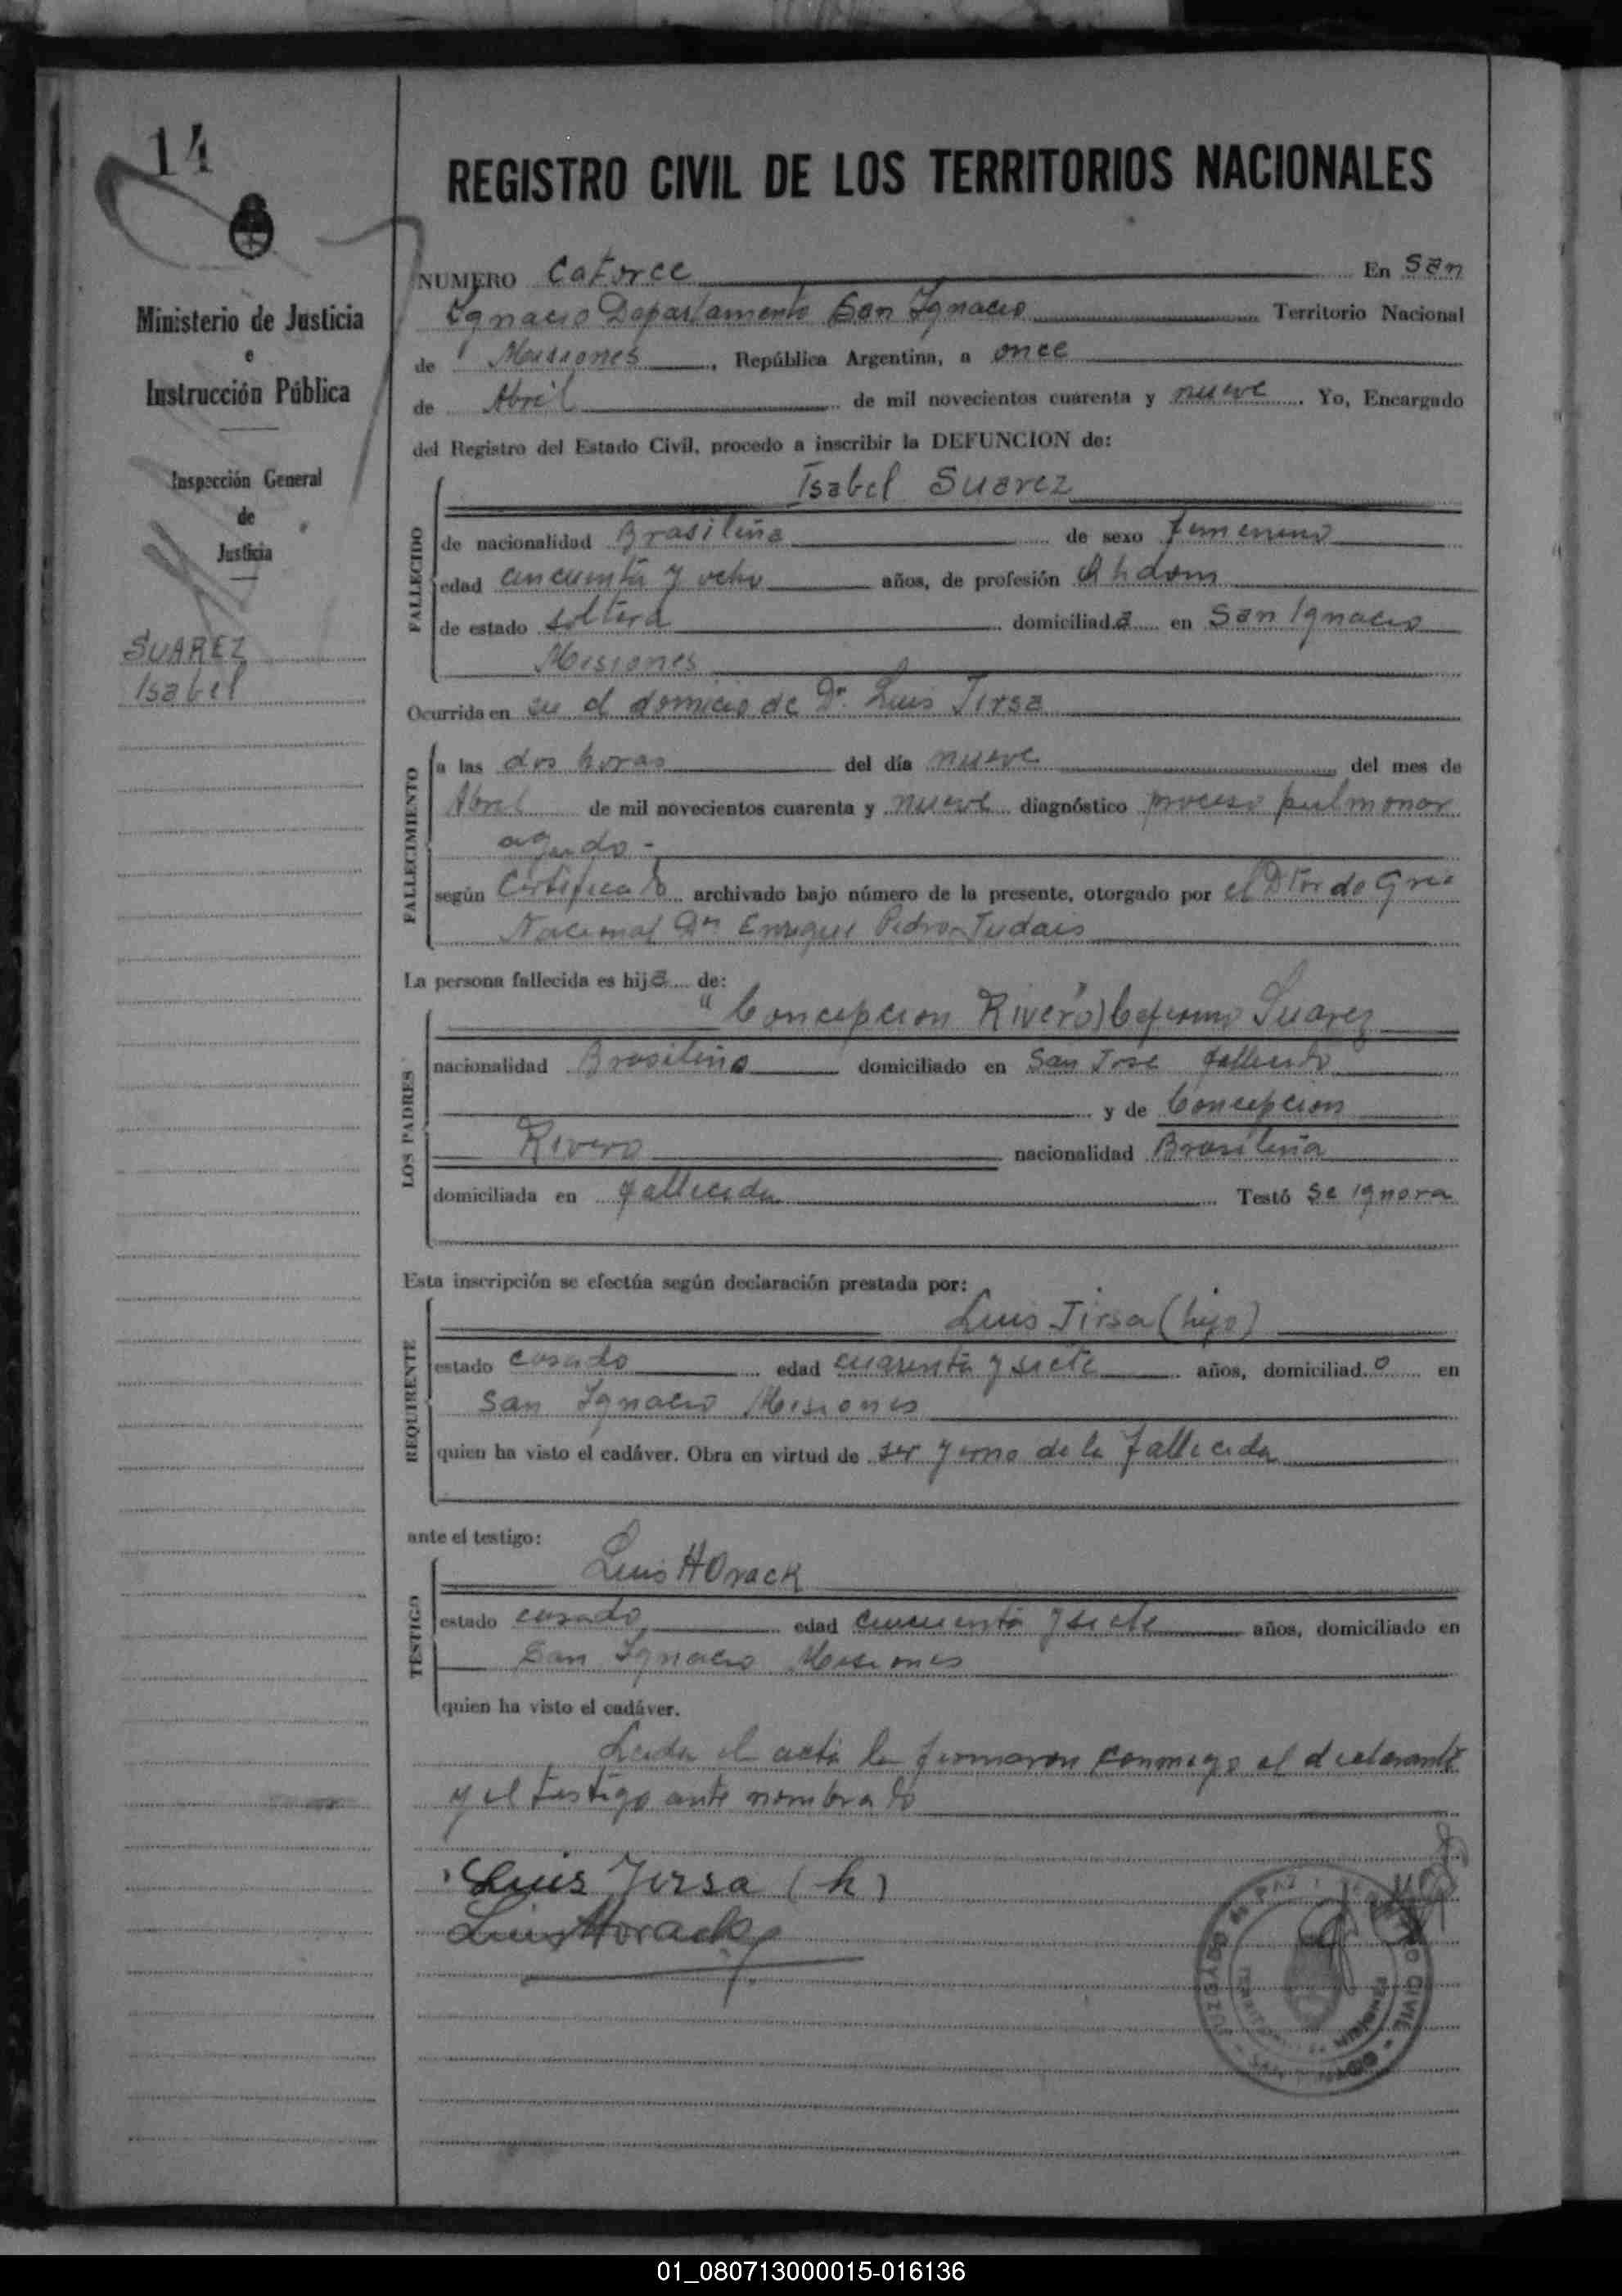 14
REGISTRO CIVIL DE LOS TERRITORIOS NACIONALES
Ministerio de Justicia
e
Instrucción Pública
Inspección General
de
Justicia
SUAREZ
Isabel
NUMERO Catorce En San
Ignacio Departamento San Ignacio Territorio Nacional
de Misiones, República Argentina, a once
de Abril de mil novecientos cuarenta y nueve. Yo, Encargado
del Registro del Estado Civil, procedo a inscribir la DEFUNCION de:
Isabel Suarez
FALLECIDO
de nacionalidad Brasileña de sexo femenino
edad cincuenta y ocho años, de profesión
de estado soltera domiciliada en San Ignacio
Misiones
Ocurrida en en el domicio de Dn. Luis Tirsa
FALLECIMIENTO
a las dos horas del día nueve del mes de
Abril de mil novecientos cuarenta y nueve diagnóstico proceso pulmonar
agudo -
según Certificado archivado bajo número de la presente, otorgado por el
Nacional Dn Enrique Pedro
La persona fallecida es hija de:
"Concepcion Rivero) Ceferino Suarez
LOS PADRES
nacionalidad Brasileño domiciliado en San Jose fallecido
y de Concepcion
Rivero nacionalidad Brasileña
domiciliada en fallecida Testó se ignora
Esta inscripción se efectúa según declaración prestada por:
Luis Tirsa (hijo)
REQUIRENTE
estado casado edad cuarenta y siete años, domiciliado en
San Ignacio Misiones
quien ha visto el cadáver. Obra en virtud de ser yerno de la fallecida
ante el testigo:
Luis HOrack
TESTIGO
estado casado edad cincuenta y siete años, domiciliado en
San Ignacio Misiones
quien ha visto el cadáver.
Leida el acta la firmaron conmigo el declarante
y el testigo ante nombrado
Luis Tirsa (h)
Luis Horack
01_080713000015-016136